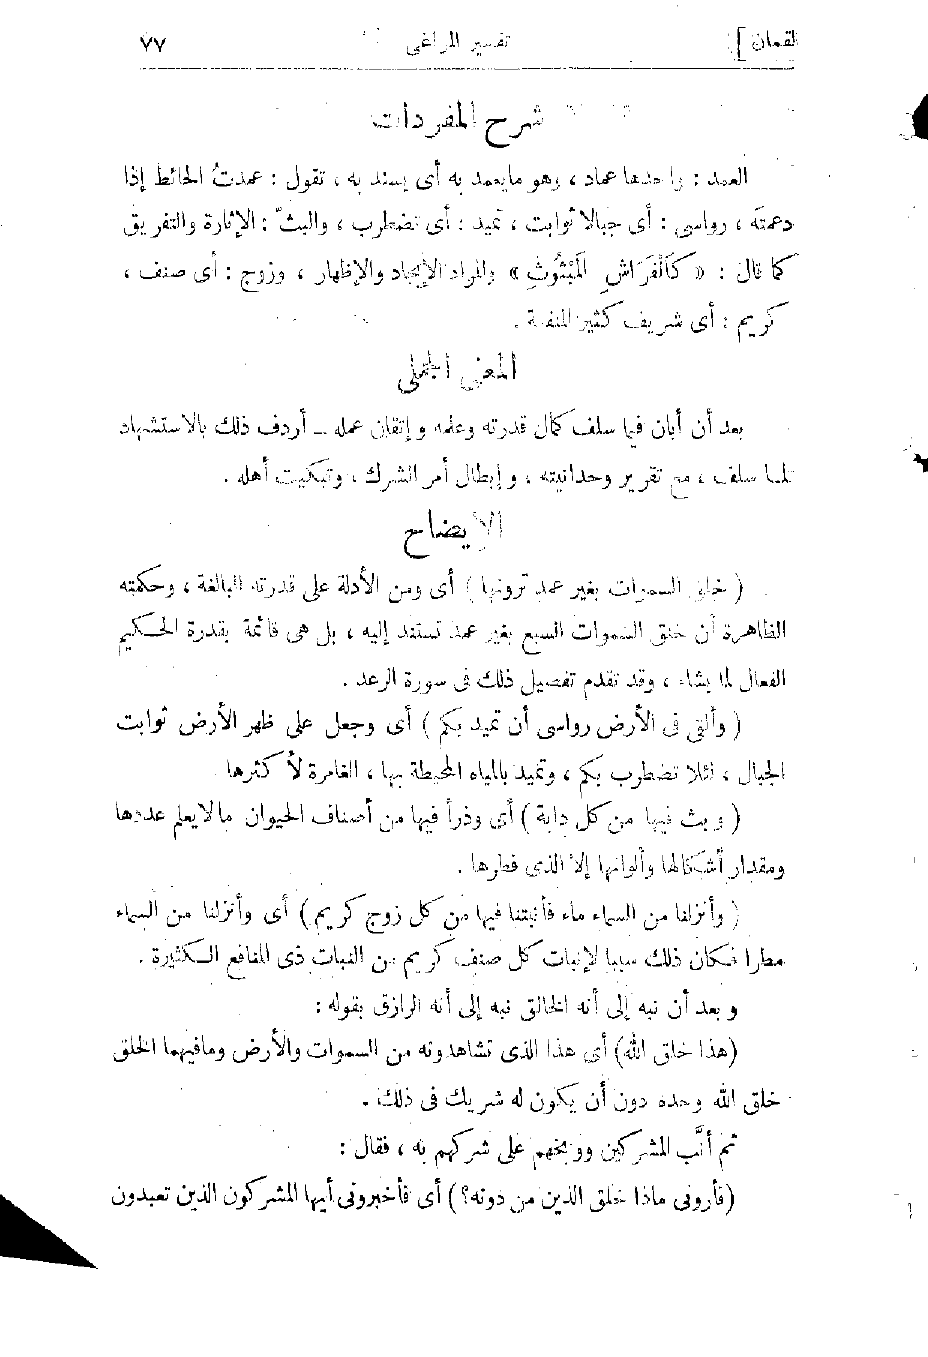 لقمان ] تفسير المراغى ٧٧
شرح المفردات
العمد : واحدها عماد ، وهو مايعمد به أى يسند به ، تقول : عمدتُ الحائط إذا
دعمته ، رواسى : أى جبالا ثوابت ، تميد : أى تضطرب ، والبثّ : الإثارة والتفريق
كما قال : « كَالْفَرَاشِ الْمَبْثُوثِ » والمراد الإيجاد والإظهار ، وزوج : أى صنف ،
كريم : أى شريف كثير المنفعة .
المعنى الجملى
بعد أن أبان فيما سلف كمال قدرته وعلمه وإتقان عمله ــ أردف ذلك بالاستشهاد
لما سلف ، مع تقرير وحدانيته ، وإبطال أمر الشرك ، وتبكيت أهله .
الإيضاح
( خلق السموات بغير عمد ترونها ) أى ومن الأدلة على قدرته البالغة ، وحكمته
الظاهرة أن خلق السموات السبع بغير عمد تستند إليه ، بل هى قائمة بقدرة الحكيم
الفعال لما يشاء ، وقد تقدم تفصيل ذلك فى سورة الرعد .
( وألقى فى الأرض رواسى أن تميد بكم ) أى وجعل على ظهر الأرض ثوابت
الجبال ، لئلا تضطرب بكم ، وتميد بالمياه المحيطة بها ، الغامرة لأكثرها
( وبث فيها من كل دابة ) أى وذرأ فيها من أصناف الحيوان مالايعلم عددها
ومقدار أشكالها وألوانها إلا الذى فطرها .
( وأنزلنا من السماء ماء فأنبتنا فيها من كل زوج كريم ) أى وأنزلنا من السماء
مطرا فكان ذلك سببا لإنبات كل صنف كريم من النبات ذى المنافع الكثيرة .
وبعد أن نبه إلى أنه الخالق نبه إلى أنه الرازق بقوله :
(هذا خلق الله) أى هذا الذى تشاهدونه من السموات والأرض ومافيهما الخلق
خلق الله وحده دون أن يكون له شريك فى ذلك .
ثم أنَّب المشركين ووبخهم على شركهم به ، فقال :
(فأرونى ماذا خلق الذين من دونه؟) أى فأخبرونى أيها المشركون الذين تعبدون